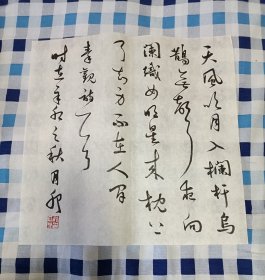 天风吹月入欄杆乌
鵲无声子夜向
阑織女明星来枕上
了知身不在人间
秦觀诗一首
时在辛卯之秋月